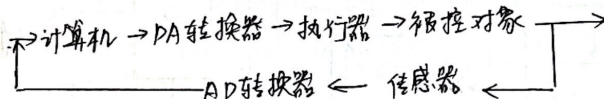 →计算机→DA转换器→执行器→被控对象→
AD转换器←传感器←